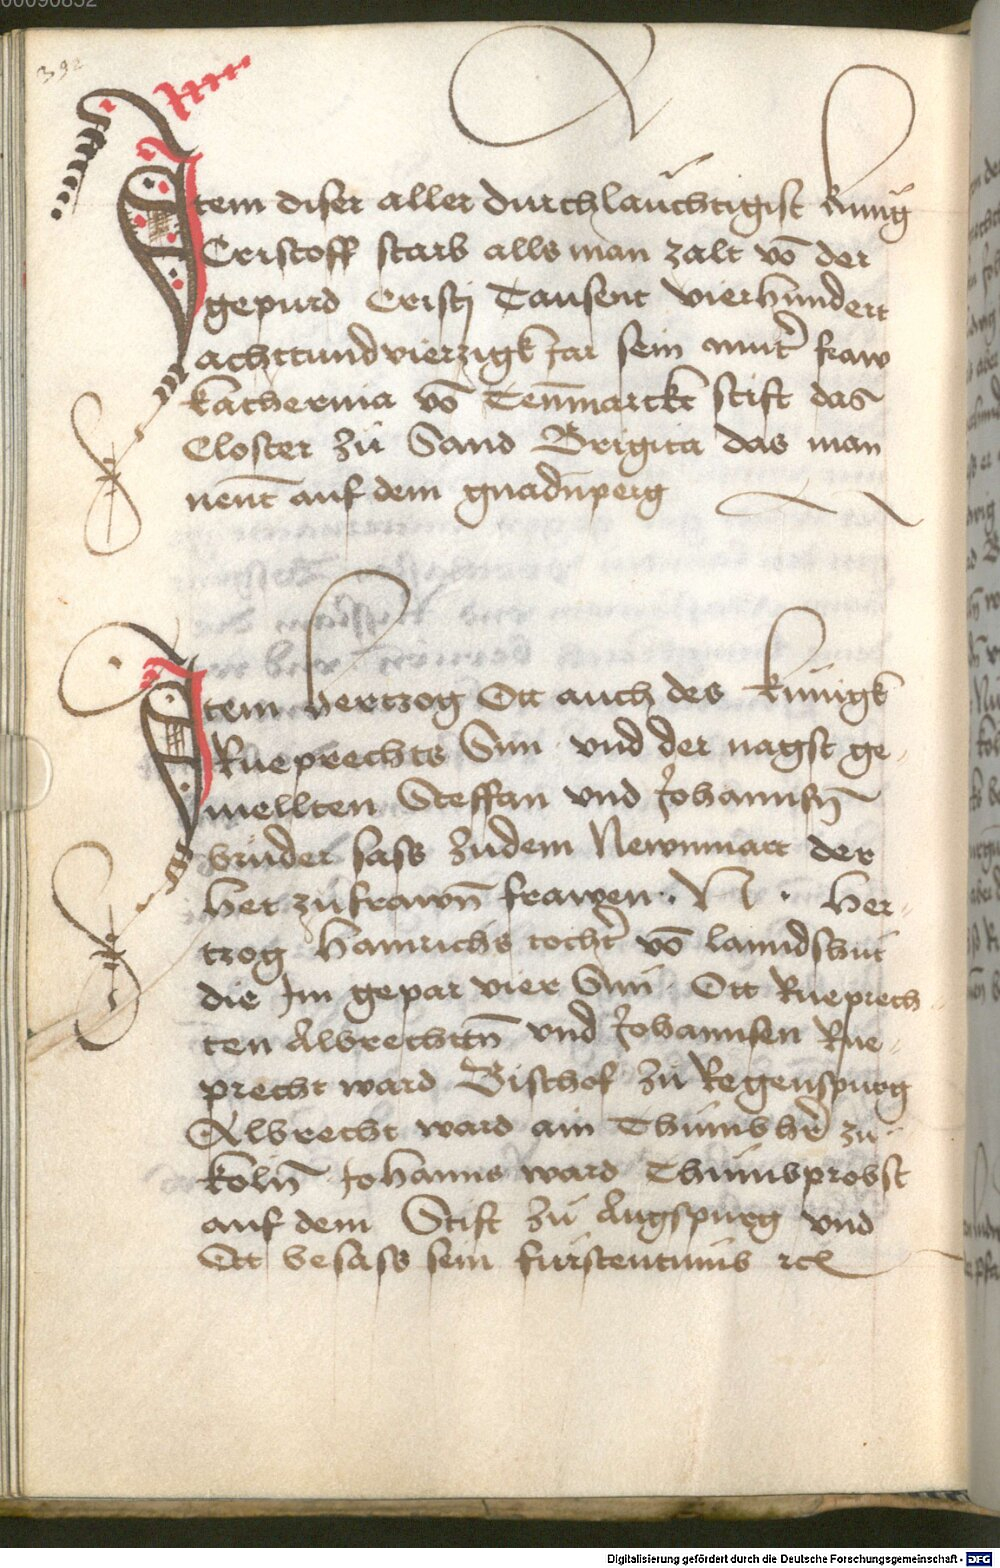 392
Item diser aller durchlauchtigist kunig
Cristoff starb alls man zalt vō der
gepurd Cristj Tausent vierhundert
achttundvierzigk Jar sein mut̄ fraw
katherina vō Ten̄marckt stift das
Closter zu Sand Brigita das man
nen̄t auf dem gnadn̄perg
Item hertzog Ott auch des kunigk
Rueprechts Sun vnd der nagst ge
mellten Steffan vnd Johannsn̄
bruder sass zudem Newnmart der
het zu frawn̄ frawen · N · her-
tzog hainrichs tocht̄ vō lanndshut
die Im gepar vier Sun Ott Rueprech-
ten Albrechtn̄ vnd Johannsen Rue-
precht ward Bischof zu Regenspurg
Albrecht ward ain Thumbhr̄ zu
koln̄ Johanns ward Thumbprobst
auf dem Stift zu Augspurg vnd
Ott besass sein furstentumb rc
Digitalisierung gefördert durch die Deutsche Forschungsgemeinschaft - DFG